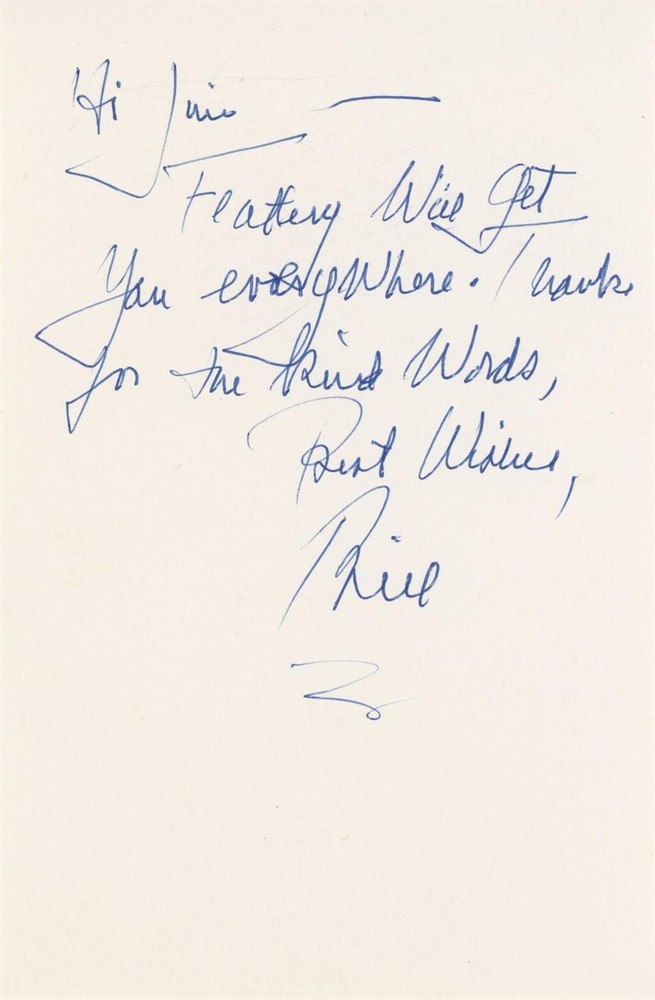 Hi Jim —
Flattery Will Get
You everywhere. Thanks
for the kind Words,
Best Wishes,